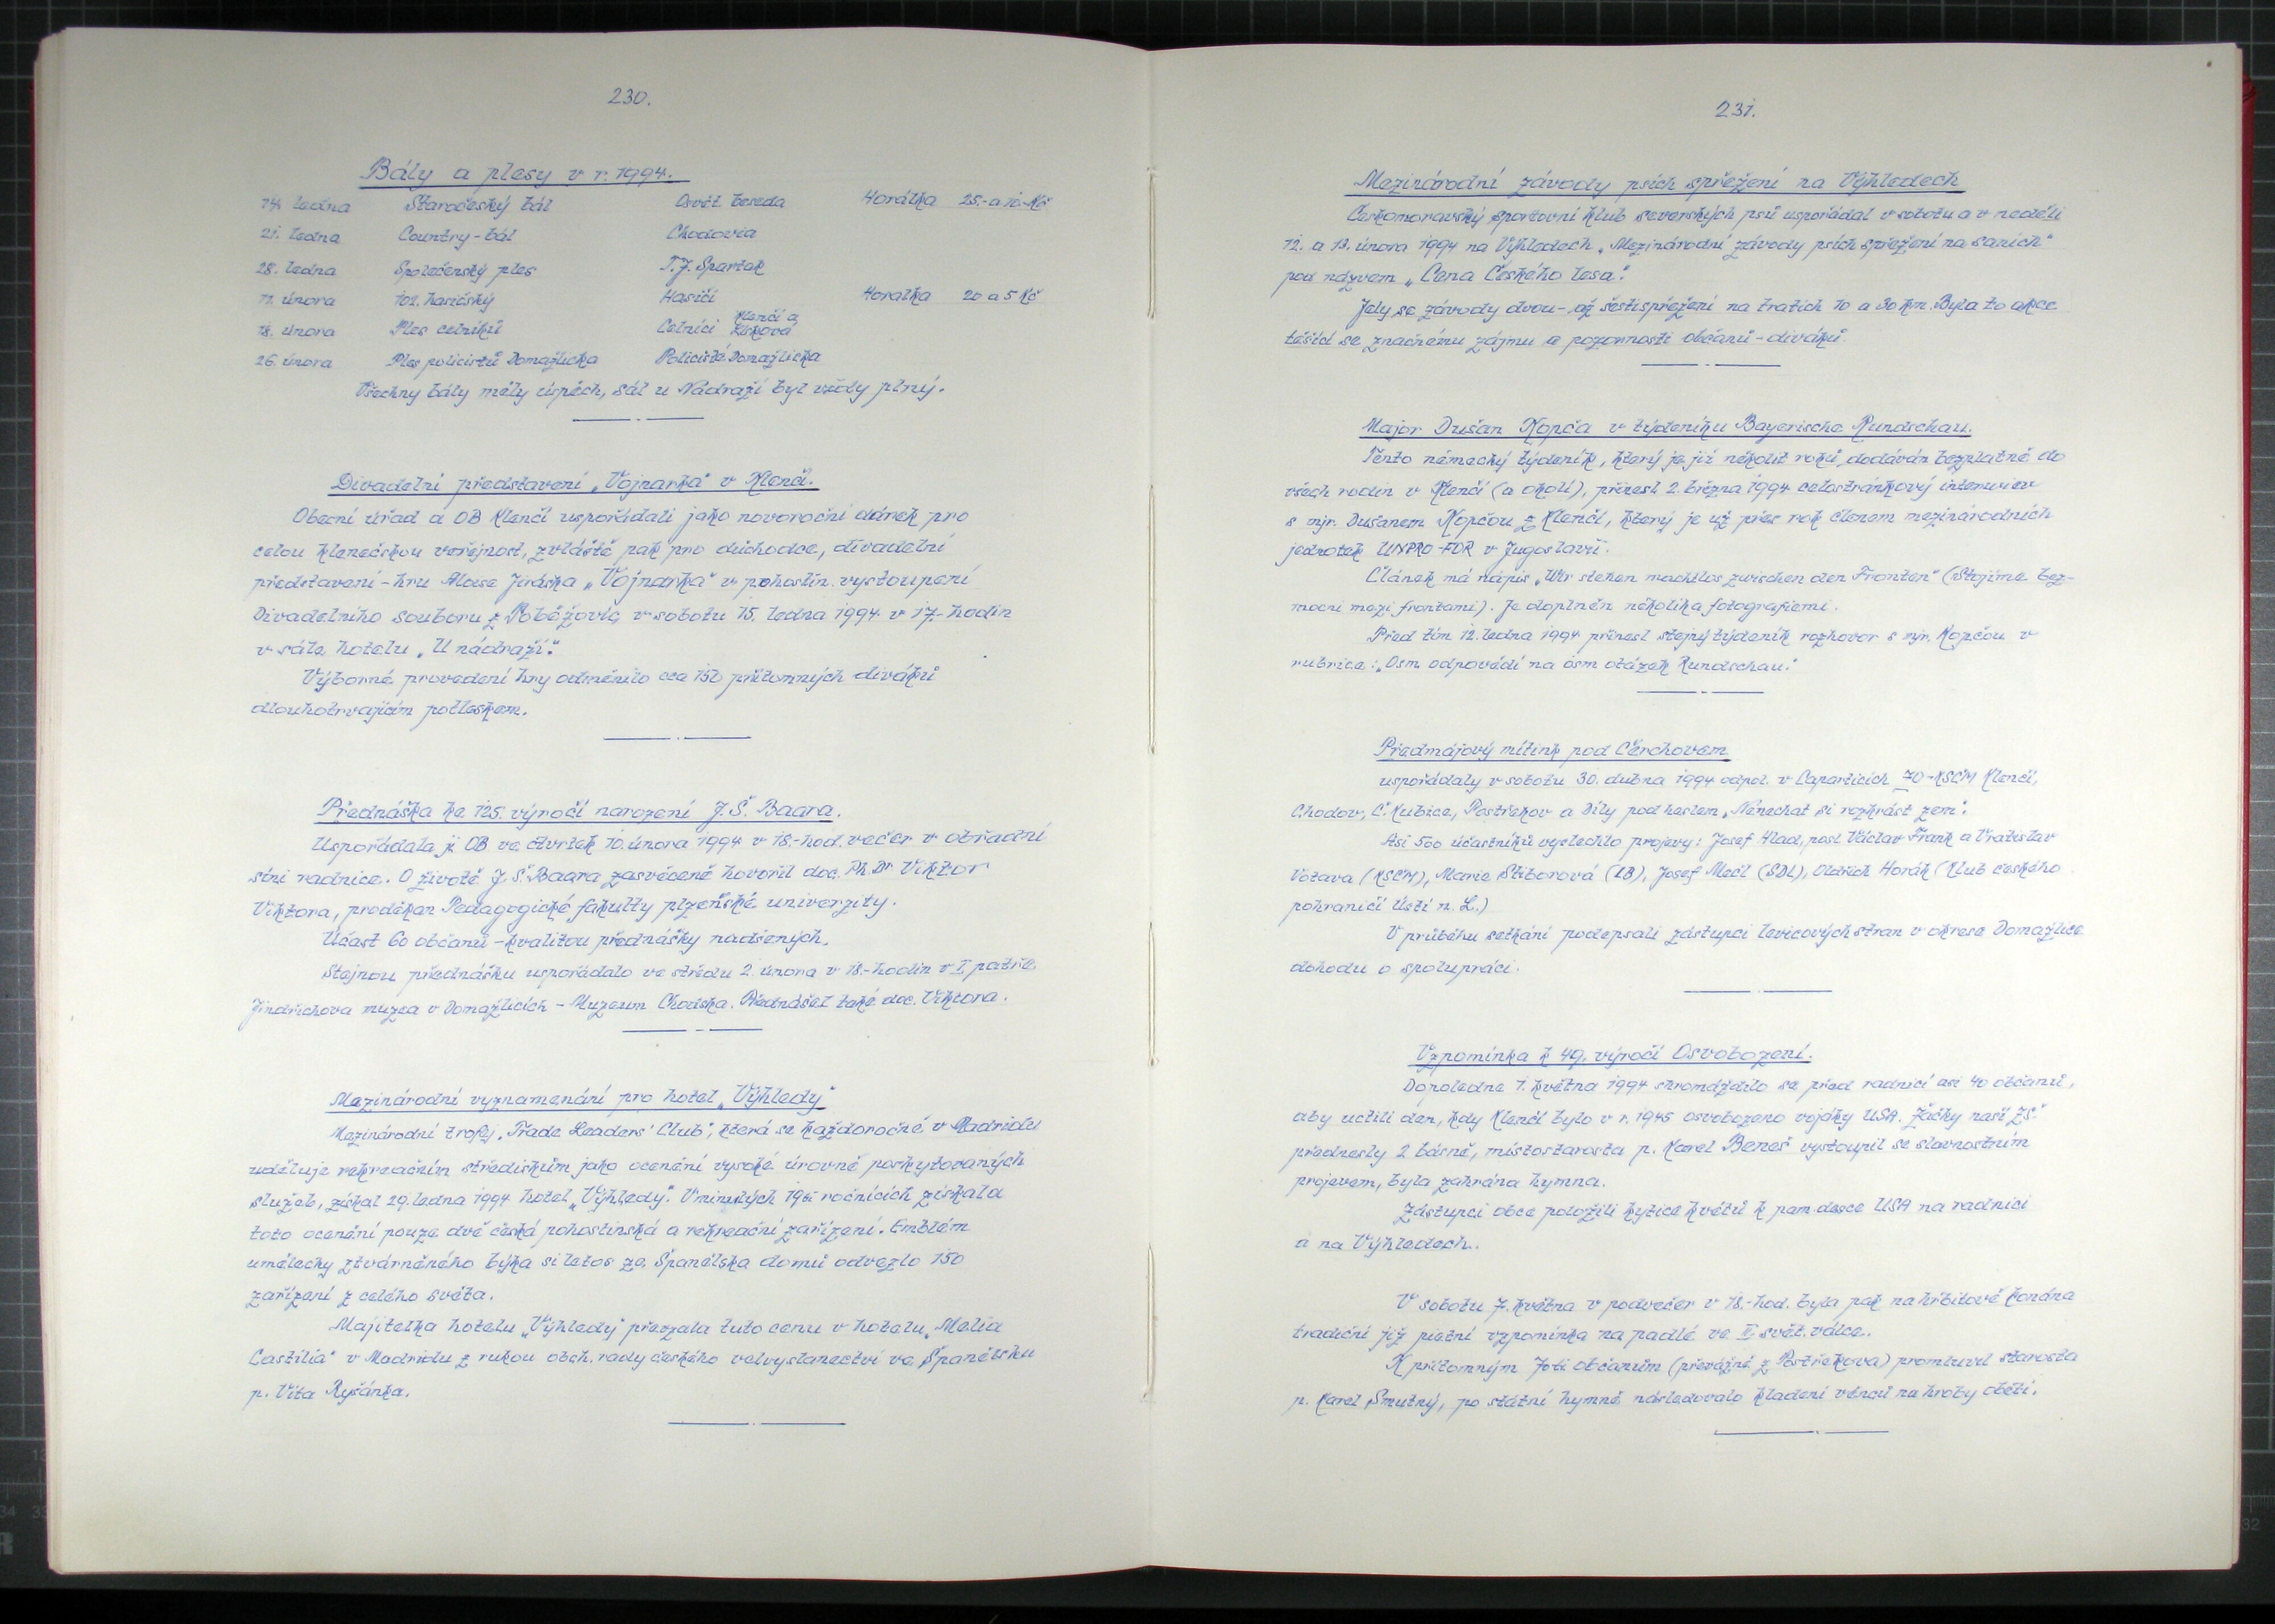 230.
Bály a plesy v r. 1994.
14. ledna Staročeský bál Osvět. beseda Horalka 25.- a 10.-Kč
21. ledna Country-bál Chodovia
28. ledna Společenský ples T.J. Spartak
11. února 102. hasičský Hasiči Horalka 20 a 5 Kč
18. února Ples celníků Celníci Klenčí a Lísková
26. února Ples policistů Domažlicka Policisté Domažlicka
Všechny bály měly úspěch, sál u Nádraží byl vždy plný.
Divadelní představení „Vojnarka" v Klenčí.
Obecní úřad a OB Klenčí uspořádali jako novoroční dárek pro
celou klenečskou veřejnost, zvláště pak pro důchodce, divadelní
představení - hru Aloise Jiráska „Vojnarka" v pohostin. vystoupení
Divadelního souboru z Poběžovic, v sobotu 15. ledna 1994 v 17.- hodin
v sále hotelu „U nádraží."
Výborné provedení hry odměnilo cca 150 přítomných diváků
dlouhotrvajícím potleskem.
Přednáška ke 125. výročí narození J. Š. Baara.
Uspořádala ji OB ve čtvrtek 10. února 1994 v 18.- hod. večer v obřadní
síni radnice. O životě J. Š. Baara zasvěceně hovořil doc. Ph.Dr Viktor
Viktora, proděkan Pedagogické fakulty plzeňské univerzity.
Účast 60 občanů - kvalitou přednášky nadšených.
Stejnou přednášku uspořádalo ve středu 2. února v 18.- hodin v I. patře
Jindřichova muzea v Domažlicích - Muzeum Chodska. Přednášel také doc. Viktora.
Mezinárodní vyznamenání pro hotel „Výhledy"
Mezinárodní trofej „Trade Leaders' Club", která se každoročně v Madridu
uděluje rekreačním střediskům jako ocenění vysoké úrovně poskytovaných
služeb, získal 29. ledna 1994 hotel „Výhledy". V minulých 19ti ročnících získala
toto ocenění pouze dvě česká pohostinská a rekreační zařízení. Emblém
umělecky ztvárněného býka si letos ze Španělska domů odvezlo 150
zařízení z celého světa.
Majitelka hotelu „Výhledy" převzala tuto cenu v hotelu „Melia
Castilia" v Madridu z rukou obch. rady českého velvyslanectví ve Španělsku
p. Víta Ryšánka.
231.
Mezinárodní závody psích spřežení na Výhledech
Českomoravský sportovní klub severských psů uspořádal v sobotu a v neděli
12. a 13. února 1994 na Výhledech „Mezinárodní závody psích spřežení na saních"
pod názvem „Cena Českého lesa".
Jely se závody dvou-, až šestispřežení na tratích 10 a 30 km. Byla to akce
těšící se značnému zájmu a pozornosti občanů - diváků.
Major Dušan Kopča v týdeníku Bayerische Rundschau.
Tento německý týdeník, který je již několik roků, dodáván bezplatně do
všech rodin v Klenčí (a okolí), přinesl 2. března 1994 celostránkový interwiev
s mjr. Dušanem Kopčou z Klenčí, který je už přes rok členem mezinárodních
jednotek UNPRO-FOR v Jugoslavii.
Článek má nápis „Wir stehen machtlos zwischen den Fronten" (Stojíme bez-
mocní mezi frontami). Je doplněn několika fotografiemi.
Před tím 12. ledna 1994 přinesl stejný týdeník rozhovor s mjr. Kopčou v
rubrice: „Osm odpovědí na osm otázek Rundschau."
Předmájový mítink pod Čerchovem
uspořádaly v sobotu 30. dubna 1994 odpol. v Caparticích ZO-KSČM Klenčí,
Chodov, Č. Kubice, Postřekov a Díly pod heslem „Nenechat si rozkrást zem".
Asi 500 účastníků vyslechlo projevy: Josef Hlad, posl. Václav Frank a Vratislav
Votava (KSČM), Marie Stiborová (LB), Josef Mečl (SDL), Oldřich Horák (Klub českého
pohraničí Ústí n. L.)
V průběhu setkání podepsali zástupci levicových stran v okrese Domažlice
dohodu o spolupráci.
Vzpomínka k 49. výročí Osvobození.
Dopoledne 1. května 1994 shromáždilo se před radnicí asi 40 občanů,
aby uctili den, kdy Klenčí bylo v r. 1945 osvobozeno vojáky USA. Žačky naší ZŠ
přednesly 2 básně, místostarosta p. Karel Beneš vystoupil se slavnostním
projevem, byla zahrána hymna.
Zástupci obce položili kytice květů k pam. desce USA na radnici
a na Výhledech.
V sobotu 7. května v podvečer v 18.- hod. byla pak na hřbitově konána
tradiční již pietní vzpomínka na padlé ve II. svět. válce.
K přítomným 70ti občanům (převážně z Postřekova) promluvil starosta
p. Karel Smutný, po státní hymně následovalo kladení věnců na hroby obětí.